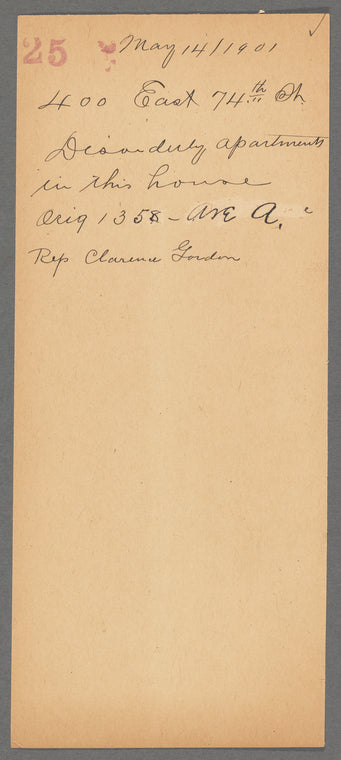 25 May 14/1901
400 East 74th St.
Disorderly apartments
in this house
Orig 1358 - Ave A.
Rep Clarence Gordon